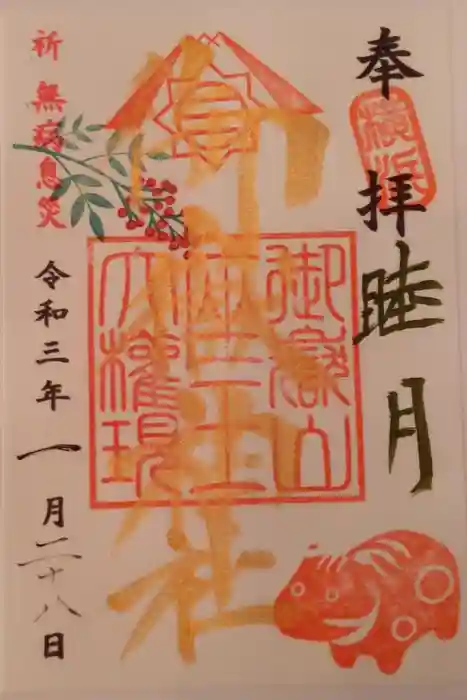 奉拝
横浜
睦月
御嶽山
王
大権現
社
祈 無病息災
令和三年一月二十八日